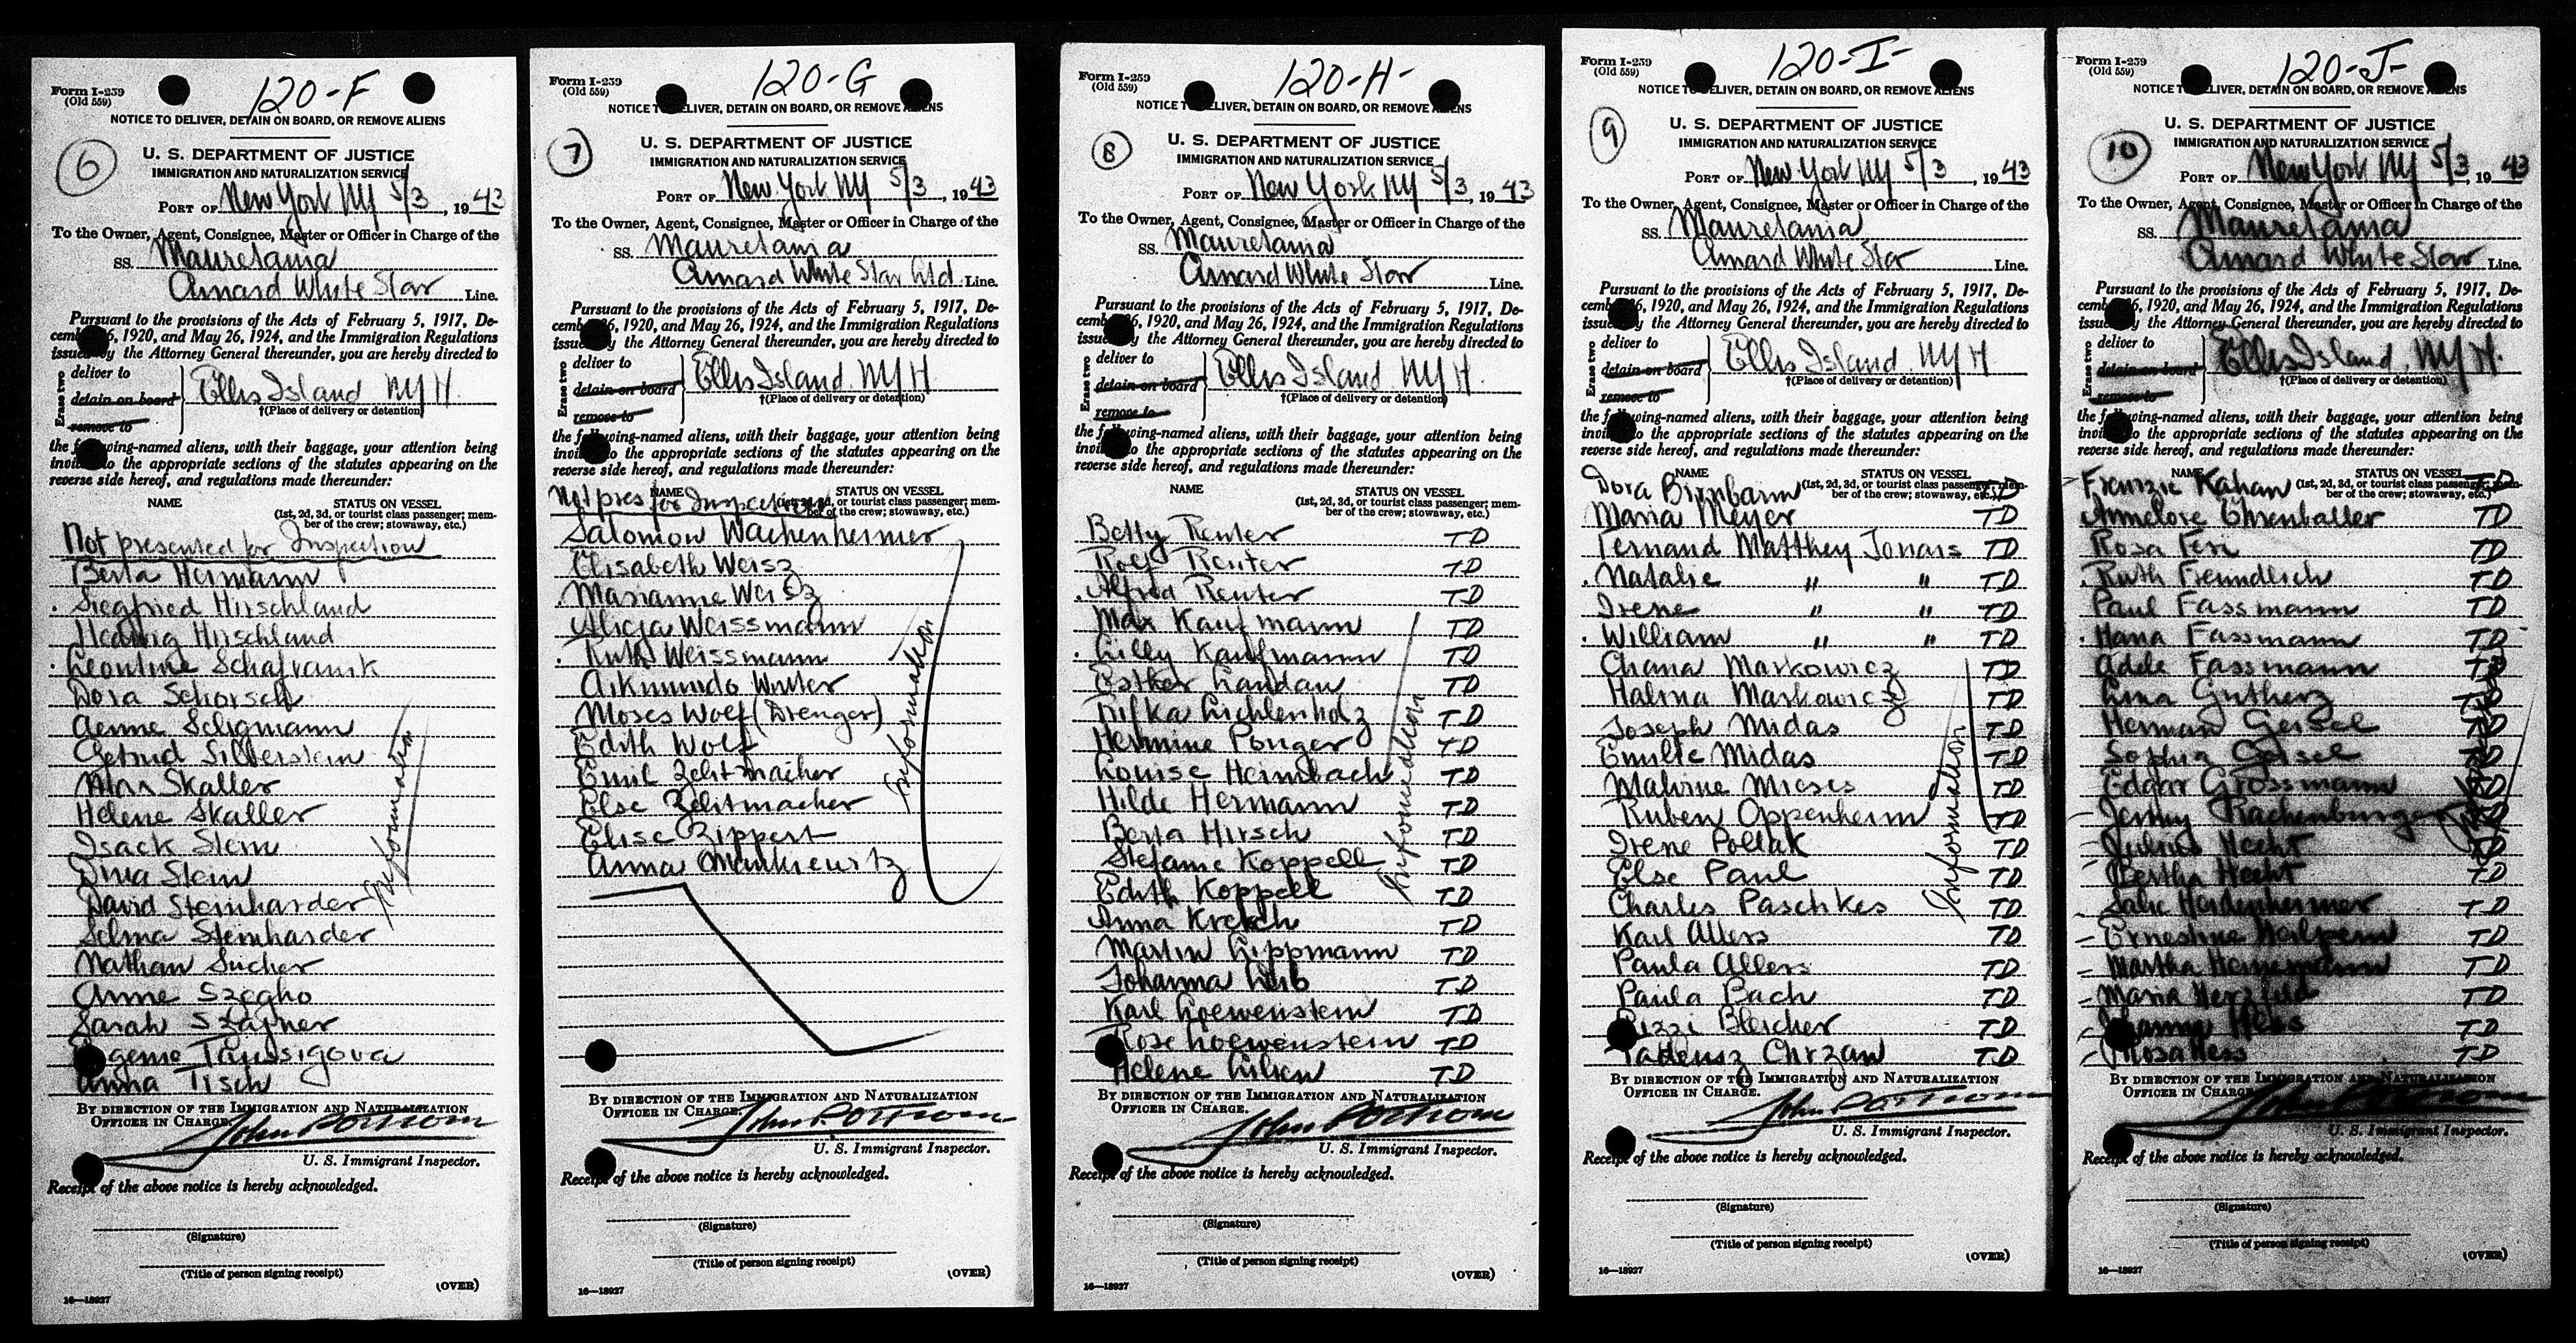 120-F
Form I-259
(Old 559)
NOTICE TO DELIVER, DETAIN ON BOARD, OR REMOVE ALIENS
6
U. S. DEPARTMENT OF JUSTICE
IMMIGRATION AND NATURALIZATION SERVICE
PORT OF New York NY 5/3, 1943
To the Owner, Agent, Consignee, Master or Officer in Charge of the
SS. Mauretania
Cunard White Star Line.
Pursuant to the provisions of the Acts of February 5, 1917, De-
cember 26, 1920, and May 26, 1924, and the Immigration Regulations
issued by the Attorney General thereunder, you are hereby directed to
Erase two
deliver to
detain on board
remove to
Ellis Island NYH
†(Place of delivery or detention)
the following-named aliens, with their baggage, your attention being
invited to the appropriate sections of the statutes appearing on the
reverse side hereof, and regulations made thereunder:
NAME STATUS ON VESSEL
(1st, 2d, 3d, or tourist class passenger; mem-
ber of the crew; stowaway, etc.)
Not presented for Inspection
Berta Hermann
Siegfried Hirschland
Hedwig Hirschland
Leontine Schafranik
Dora Schorsch
Aenne Seligmann
Getrud Silberstein
Max Skaller
Helene Skaller
Isack Stein
Dina Stein
David Steinharder
Selma Steinharder
Nathan Sucher
Anne Szegho
Sarah Szajner
Eugenie Taussigova
Anna Tisch
Information
BY DIRECTION OF THE IMMIGRATION AND NATURALIZATION
OFFICER IN CHARGE.
U. S. Immigrant Inspector.
Receipt of the above notice is hereby acknowledged.
(Signature)
(Title of person signing receipt)
(OVER)
16—18927
120-G
Form I-259
(Old 559)
NOTICE TO DELIVER, DETAIN ON BOARD, OR REMOVE ALIENS
7
U. S. DEPARTMENT OF JUSTICE
IMMIGRATION AND NATURALIZATION SERVICE
PORT OF New York NY 5/3, 1943
To the Owner, Agent, Consignee, Master or Officer in Charge of the
SS. Mauretania
Cunard White Star Ltd. Line.
Pursuant to the provisions of the Acts of February 5, 1917, De-
cember 26, 1920, and May 26, 1924, and the Immigration Regulations
issued by the Attorney General thereunder, you are hereby directed to
Erase two
deliver to
detain on board
remove to
Ellis Island NYH
†(Place of delivery or detention)
the following-named aliens, with their baggage, your attention being
invited to the appropriate sections of the statutes appearing on the
reverse side hereof, and regulations made thereunder:
NAME STATUS ON VESSEL
(1st, 2d, 3d, or tourist class passenger; mem-
ber of the crew; stowaway, etc.)
Not pres for Inspection
Salomon Wachenheimer
Elisabeth Weisz
Marianne Weisz
Alicja Weissmann
Ruth Weissmann
Winter
Moses Wolf (Drenger)
Edith Wolf
Emil Zeitmacher
Else Zeitmacher
Elise Zippert
Anna Mankiewitz
Information
BY DIRECTION OF THE IMMIGRATION AND NATURALIZATION
OFFICER IN CHARGE.
U. S. Immigrant Inspector.
Receipt of the above notice is hereby acknowledged.
(Signature)
(Title of person signing receipt)
(OVER)
16—18927
120-H-
Form I-259
(Old 559)
NOTICE TO DELIVER, DETAIN ON BOARD, OR REMOVE ALIENS
8
U. S. DEPARTMENT OF JUSTICE
IMMIGRATION AND NATURALIZATION SERVICE
PORT OF New York NY 5/3, 1943
To the Owner, Agent, Consignee, Master or Officer in Charge of the
SS. Mauretania
Cunard White Star Line.
Pursuant to the provisions of the Acts of February 5, 1917, De-
cember 26, 1920, and May 26, 1924, and the Immigration Regulations
issued by the Attorney General thereunder, you are hereby directed to
Erase two
deliver to
detain on board
remove to
Ellis Island NYH.
†(Place of delivery or detention)
the following-named aliens, with their baggage, your attention being
invited to the appropriate sections of the statutes appearing on the
reverse side hereof, and regulations made thereunder:
NAME STATUS ON VESSEL
(1st, 2d, 3d, or tourist class passenger; mem-
ber of the crew; stowaway, etc.)
Betty Reuter TD
Rolf Reuter TD
Alfred Reuter TD
Max Kaufmann TD
Lilly Kaufmann TD
Esther Landau TD
Rifka Lichtenholz TD
Hermine Ponger TD
Louise Heimbach TD
Hilde Hermann TD
Berta Hirsch TD
Stefanie Koppell TD
Edith Koppell TD
Anna TD
Martin Lippmann TD
Johanna Leib TD
Karl Loewenstein TD
Rose Loewenstein TD
Helene Lilien TD
Information
BY DIRECTION OF THE IMMIGRATION AND NATURALIZATION
OFFICER IN CHARGE.
U. S. Immigrant Inspector.
Receipt of the above notice is hereby acknowledged.
(Signature)
(Title of person signing receipt)
(OVER)
16—18927
120-I-
Form I-259
(Old 559)
NOTICE TO DELIVER, DETAIN ON BOARD, OR REMOVE ALIENS
9
U. S. DEPARTMENT OF JUSTICE
IMMIGRATION AND NATURALIZATION SERVICE
PORT OF New York NY 5/3, 1943
To the Owner, Agent, Consignee, Master or Officer in Charge of the
SS. Mauretania
Cunard White Star Line.
Pursuant to the provisions of the Acts of February 5, 1917, De-
cember 26, 1920, and May 26, 1924, and the Immigration Regulations
issued by the Attorney General thereunder, you are hereby directed to
Erase two
deliver to
detain on board
remove to
Ellis Island NYH
†(Place of delivery or detention)
the following-named aliens, with their baggage, your attention being
invited to the appropriate sections of the statutes appearing on the
reverse side hereof, and regulations made thereunder:
NAME STATUS ON VESSEL
(1st, 2d, 3d, or tourist class passenger; mem-
ber of the crew; stowaway, etc.)
Dora Birnbaum TD
Maria Meyer TD
Fernand Matthey Jonais TD
Natalie " " TD
Irene " " TD
William " " TD
Chana Markowicz TD
Halina Markowicz TD
Joseph Midas TD
Emilie Midas TD
Malvine Mieses TD
Ruben Oppenheim TD
Irene Pollak TD
Else Paul TD
Charles Paschkes TD
Karl Allers TD
Paula Allers TD
Paula Bach TD
Rizzi Bleicher TD
Tadeusz Chrzan TD
Information
BY DIRECTION OF THE IMMIGRATION AND NATURALIZATION
OFFICER IN CHARGE.
U. S. Immigrant Inspector.
Receipt of the above notice is hereby acknowledged.
(Signature)
(Title of person signing receipt)
(OVER)
16—18927
120-J-
Form I-259
(Old 559)
NOTICE TO DELIVER, DETAIN ON BOARD, OR REMOVE ALIENS
10
U. S. DEPARTMENT OF JUSTICE
IMMIGRATION AND NATURALIZATION SERVICE
PORT OF New York NY 5/3, 1943
To the Owner, Agent, Consignee, Master or Officer in Charge of the
SS. Mauretania
Cunard White Star Line.
Pursuant to the provisions of the Acts of February 5, 1917, De-
cember 26, 1920, and May 26, 1924, and the Immigration Regulations
issued by the Attorney General thereunder, you are hereby directed to
Erase two
deliver to
detain on board
remove to
Ellis Island NYH.
†(Place of delivery or detention)
the following-named aliens, with their baggage, your attention being
invited to the appropriate sections of the statutes appearing on the
reverse side hereof, and regulations made thereunder:
NAME STATUS ON VESSEL
(1st, 2d, 3d, or tourist class passenger; mem-
ber of the crew; stowaway, etc.)
Kahan TD
Annelore TD
Rosa Feri TD
Ruth Freundlich TD
Paul Fassmann TD
Hana Fassmann TD
Adele Fassmann TD
Lina Gutherz TD
Herman Geisel TD
Sophia Geisel TD
Edgar Grossmann TD
Jenny Rachenburger TD
Julius Hecht TD
Bertha Hecht TD
Salie Heidenheimer TD
Ernestine Halpern TD
Martha Heinemann TD
Maria Herzfeld TD
Hess TD
Rosa Hess TD
BY DIRECTION OF THE IMMIGRATION AND NATURALIZATION
OFFICER IN CHARGE.
U. S. Immigrant Inspector.
Receipt of the above notice is hereby acknowledged.
(Signature)
(Title of person signing receipt)
(OVER)
16—18927